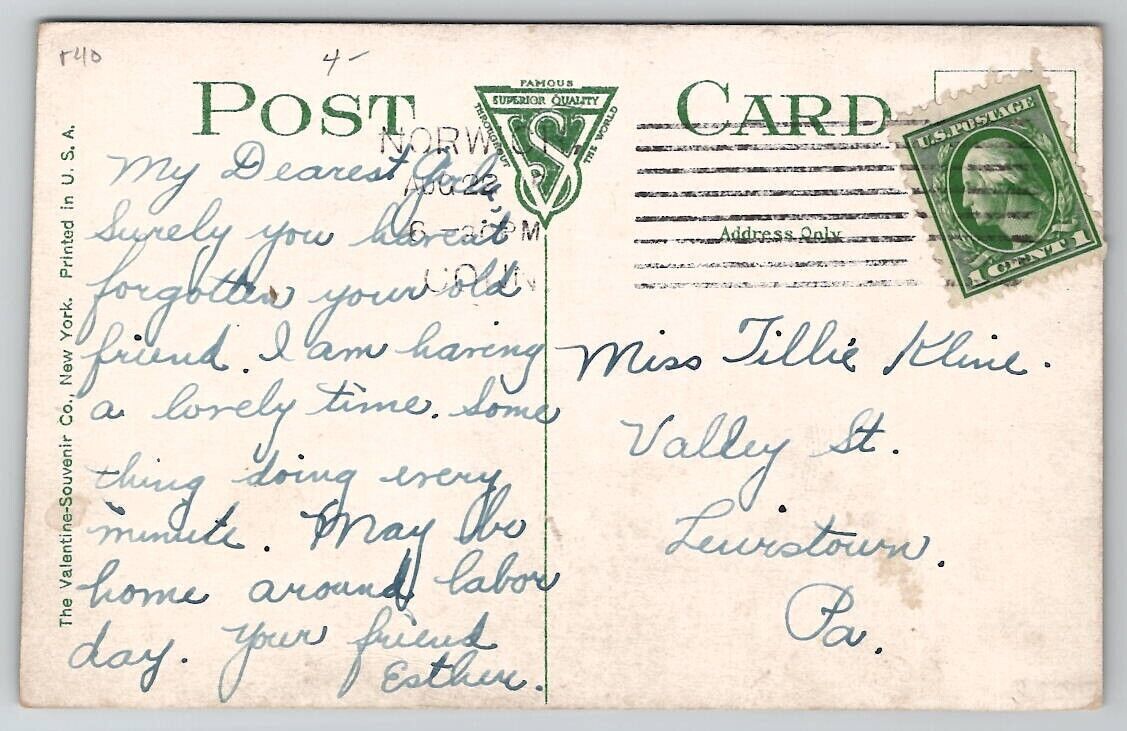 r40
4-
POST CARD
FAMOUS
SUPERIOR QUALITY
THROUGHOUT THE WORLD
VS
U.S. POSTAGE
1 CENT 1
NORWICH,
AUG 22
6 - PM
CONN.
Address Only
The Valentine-Souvenir Co., New York. Printed in U. S. A.
My Dearest Girlie,
Surely you havent
forgotten your old
friend. I am having
a lovely time. Some
thing doing every
minute. May be
home around labor
day. Your friend
Esther.
Miss Tillie Kline.
Valley St.
Lewistown.
Pa.